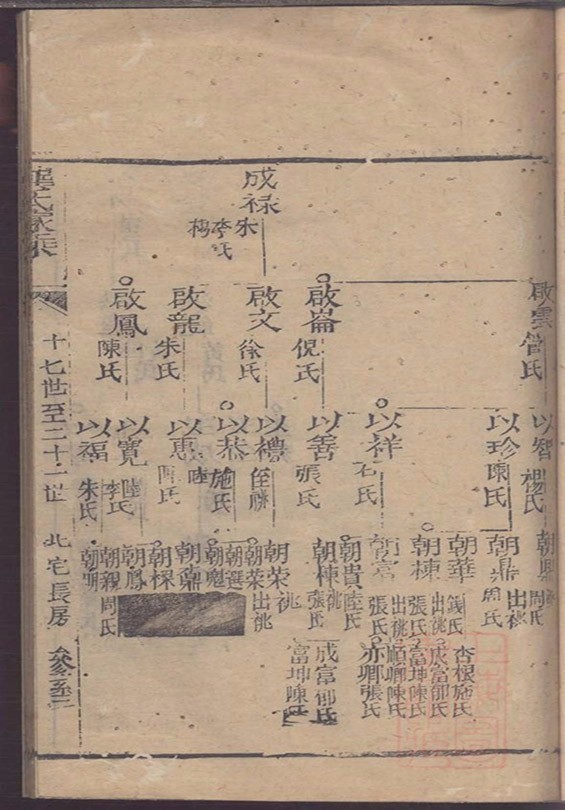 成禄
朱
李氏
楊
啟雲
管氏
啟崙
倪氏
啟文
徐氏
啟龍
朱氏
啟鳳
陳氏
以智
楊氏
以珍
陳氏
以祥
石氏
以善
張氏
以禮
以恭
施氏
以惠
陸
以寬
陸
李氏
以福
朱氏
周氏
出祧
朝鼎
周氏
朝華
錢氏
出祧
朝棟
張氏
出祧
朝富
張氏
朝貴
陸氏
朝棟
張氏
祧
朝荣
祧
朝菜
出祧
朝選
朝鼐
朝鳳
朝親
周氏
杏根施氏
成富郁氏
富坤陳氏
順卿陳氏
亦卿張氏
成富郁氏
富坤陳氏
家乘
十七世至二十一世
北宅長房